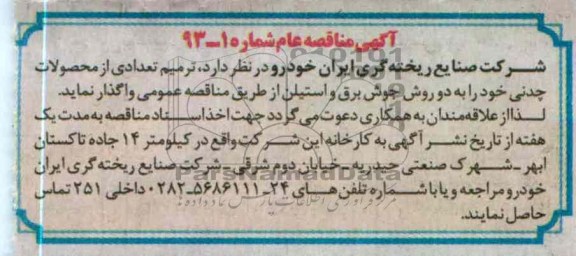 آگهی مناقصه عام شماره ۱۰ــ۹۳
شــرکت صنایع ریخته گری ایران خودرو در نظر دارد، ترمیم تعدادی از محصولات
چدنی خود را به دو روش جوش برق و استیلن از طریق مناقصه عمومی واگذار نماید.
لـذا از علاقه مندان به همکاری دعوت می گردد جهت اخذ اسـناد مناقصه به مدت یک
هفته از تاریخ نشـر آگهی به کارخانه این شرکت واقع در کیلومتر ۱۴ جاده تاکستان
ابهر ـ شهرک صنعتی حیدریه ـ خیابان دوم شرقی ـ شرکت صنایع ریخته گری ایران
خودرو مراجعه و یا با شـماره تلفن هـای ۲۴ــ۵۶۸۶۱۱۱ــ۰۲۸۲ داخلی ۲۵۱ تماس
حاصل نمایند.
ParsNamadData